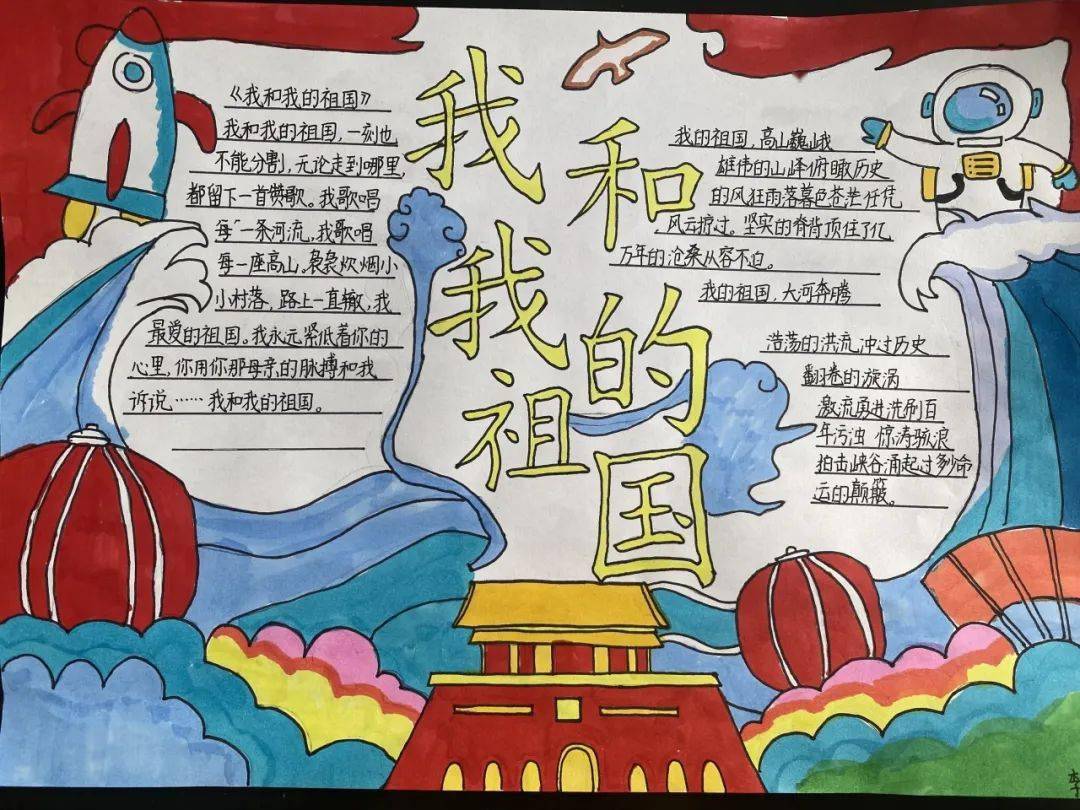 我和
我的
祖国
《我和我的祖国》
我和我的祖国,一刻也
不能分割,无论走到哪里,
都留下一首赞歌。我歌唱
每一条河流,我歌唱
每一座高山。袅袅炊烟小
小村落,路上一直辙,我
最爱的祖国。我永元紧低着你的
心里,你用你那母亲的脉搏和我
诉说……我和我的祖国。
我的祖国,高山巍峨
雄伟的山峰俯瞰历史
的风狂雨落暮色苍茫任凭
风云掠过。坚实的脊背顶住了亿
万年的沧桑从容不迫。
我的祖国,大河奔腾
浩荡的洪流冲过历史
翻卷的旋涡
激流勇进洗刷百
年污浊 惊涛骇浪
拍击峡谷涌起过多少命
运的颠簸。
李